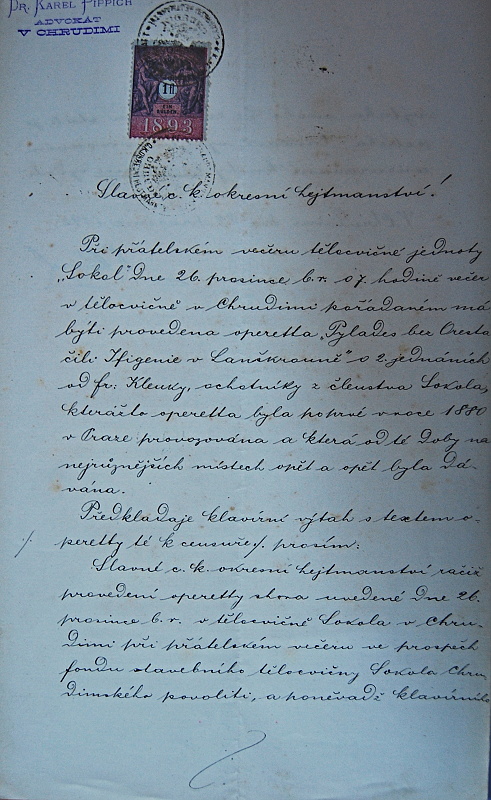 DR. KAREL PIPPICH
ADVOKÁT
V CHRUDIMI
1 fl
EIN
GULDEN
1893
Slavné c. k. okresní hejtmanství!
Při přátelském večeru tělocvičné jednoty
„Sokol" dne 26. prosince b. r. o 7. hodině večer
v tělocvičně v Chrudimi pořádaném má
býti provedena operetta „Pylades bez Oresta
čili Ifigenie v Lanškrouně" o 2 jednáních
od fr: Klenky, ochotníky z členstva Sokola,
kterážto operetta byla poprvé v roce 1880
v Praze provozována a která od té doby na
nejrůznějších místech opět a opět byla dá-
vána.
Předkládaje klavírní výtah s textem o-
peretty té k censuře ⁒ prosím:
Slavné c. k. okresní hejtmanství račiž
provedení operetty shora uvedené dne 26.
prosince b. r. v tělocvičně Sokola v Chru-
dimi při přátelském večeru ve prospěch
fondu stavebního tělocvičny Sokola Chru-
dimského povoliti, a poněvadž klavírního